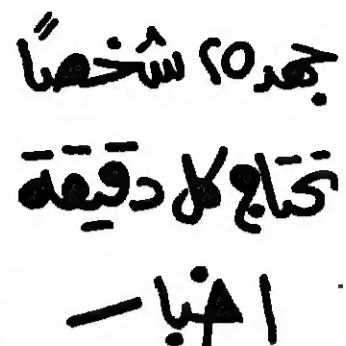 جهد ٢٥ شخصًا
تحتاج كل دقيقة